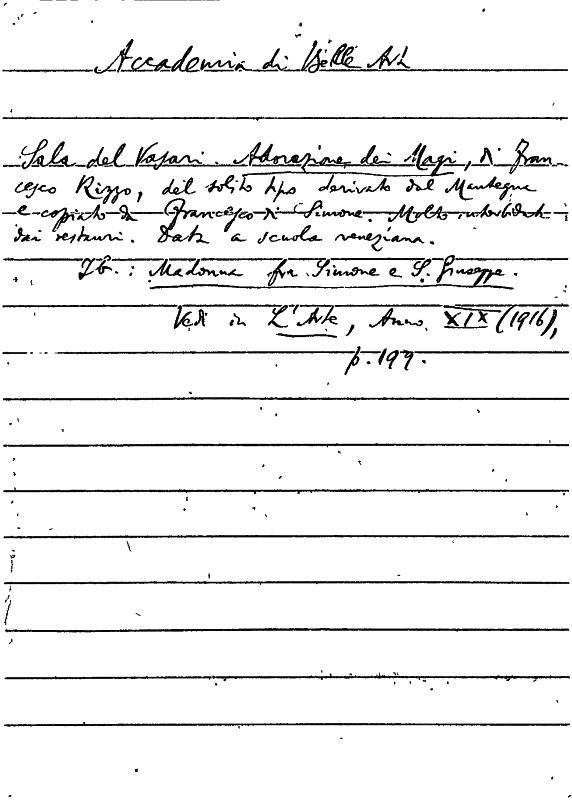 Accademia di Belle Arti
Sala del Vasari. Adorazione dei Magi, di Fran-
cesco Rizzo, del solito tipo derivato dal Mantegna
e copiato da Francesco di Simone. Molto intorbidati
dai restauri. Data a scuola veneziana.
Ib.: Madonna fra Simone e S. Giuseppe.
Vedi in L'Arte, Anno XIX (1916),
p. 199.